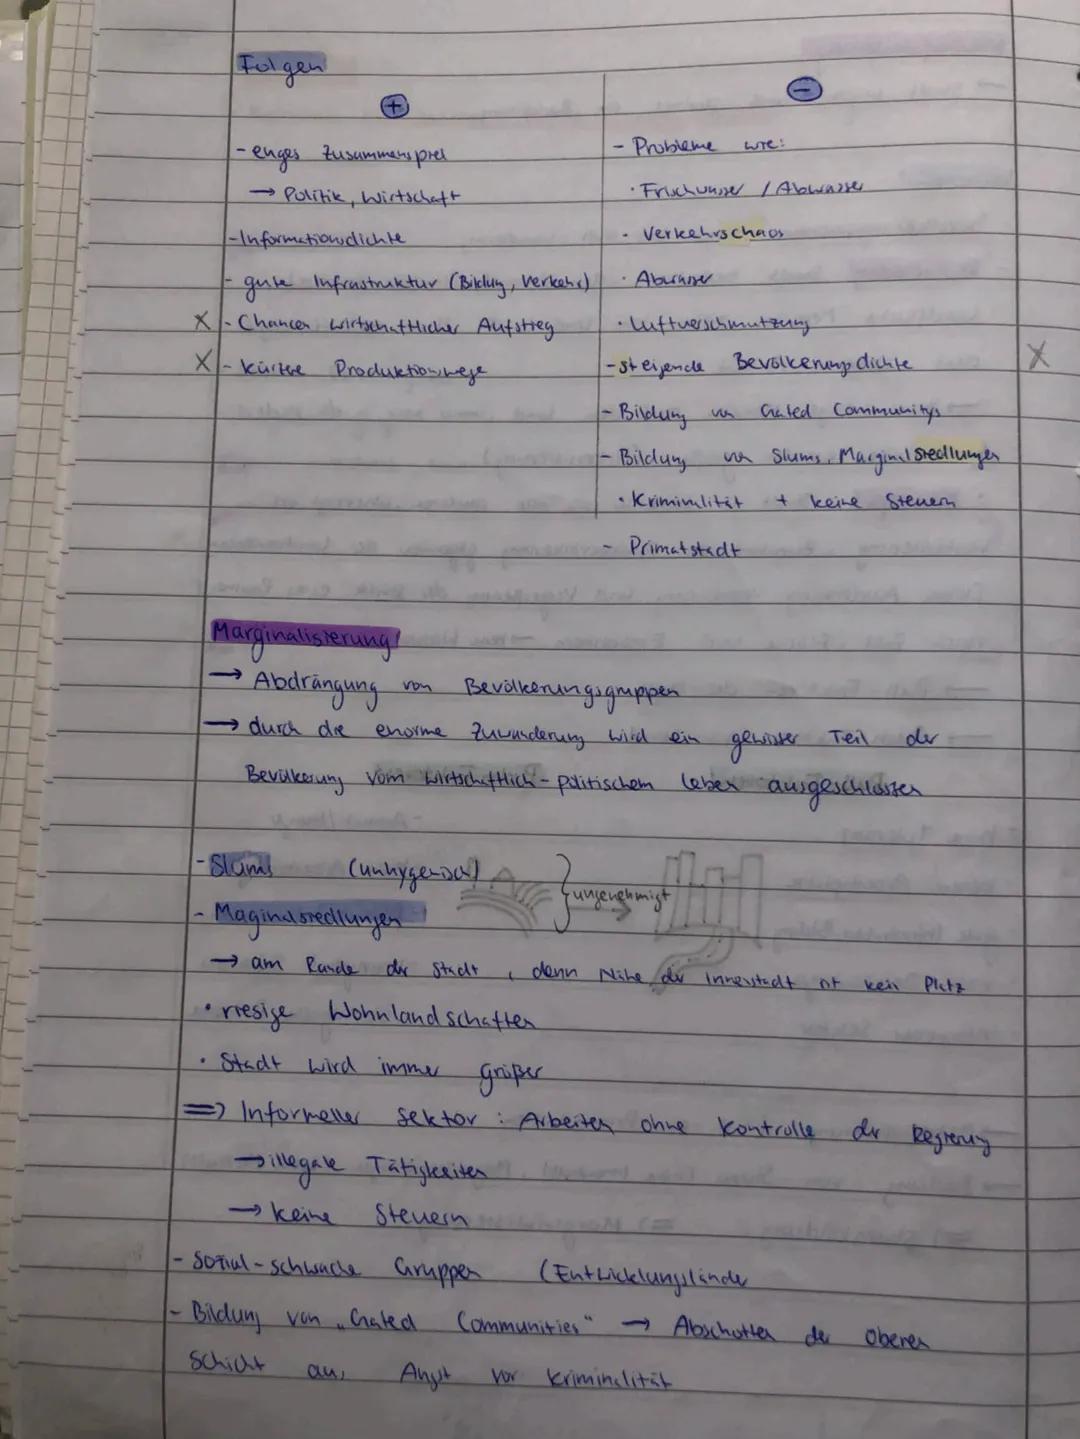 Folgen
+
- enges Zusammenspiel
→ Politik, Wirtschaft
- Informationsdichte
- gute Infrastruktur (Bildung, Verkehr)
X - Chancen wirtschaftlicher Aufstieg
X - kürzere Produktionswege
-
- Probleme wie:
· Frischwasser / Abwasser
· Verkehrschaos
· Abwasser
· Luftverschmutzung
- steigende Bevölkerungsdichte X
- Bildung von Gated Communitys
- Bildung von Slums, Marginalsiedlungen
· Kriminalität + keine Steuern
- Primatstadt
Marginalisierung
→ Abdrängung von Bevölkerungsgruppen
→ durch die enorme Zuwanderung wird ein gewisser Teil der
Bevölkerung vom wirtschaftlich-politischem Leben ausgeschlossen
- Slums (unhygenisch)
- Maginalsiedlungen } ungenehmigt
→ am Rande der Stadt, denn Nähe der Innenstadt ist kein Platz
· riesige Wohnlandschaften
· Stadt wird immer größer
=> Informeller Sektor : Arbeiten ohne Kontrolle der Regierung
→ illegale Tätigkeiten
→ keine Steuern
- Sozial-schwache Gruppen (Entwicklungsländer
- Bildung von „Gated Communities" → Abschotten der oberen
Schicht aus Angst vor Kriminalität